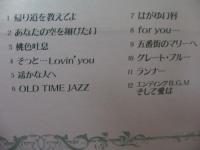 1 帰り道を教えてよ
2 あなたの空を翔びたい
3 桃色吐息
4 そっと…Lovin' you
5 遥かな人へ
6 OLD TIME JAZZ
7 はがゆい唇
8 for you…
9 五番街のマリーへ
10 グレート・ブルー
11 ランナー
12 エンディングB.G.M
そして愛は